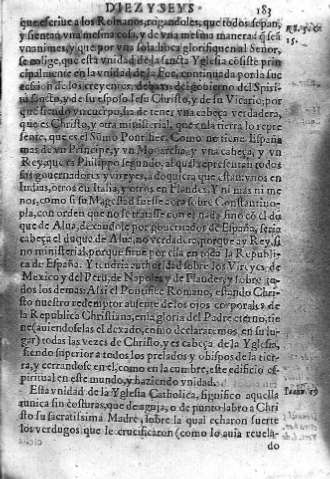 DIEZYSEYS 183
que escriue a los Romanos, rogandoles, que todos sepan,
y sientan vna mesma cosa, y de vna mesma manera: q̃ seã
vnanimes, y que por vna sola boca glorifiquen al Señor,
se colige, que esta vnidad de la sancta Yglesia cõsiste prin
cipalmente en la vnidad de la Fee, continuada por la suc
cession de los creyentes, debaxo del gouierno del Spiri
tu Sãcto, y de su esposo Iesu Christo, y de su Vicario; por
que siendo vn cuerpo, ha de tener vna cabeça verdadera,
que es Christo, y otra ministerial, que en la tierra lo repre
sente, que es el Sũmo Pontifice. Como no tiene España
mas de vn Principe, y vn Monarcha, y vna cabeça, y vn
Rey, que es Philippo segundo, al qual representan todos
sus gouernadores y virreyes, a do quiera que estan: vnos en
Indias, otros en Italia, y otros en Flandes. Y ni mas ni me
nos, como si su Magestad fuesse sobre Constantino
pla, con orden que no se tratasse con el nada sino cõ el du
que de Alua, dexandole por gouernador de España, seria
cabeça el duque de Alua, no verdadero, porque ay Rey, si
no ministerial, porque sirue por ella en toda la Republi
ca de España. Y tendria authoridad sobre los Virreyes de
Mexico y del Peru, de Napoles y de Flandes, y sobre to
dos los demas: Assi el Pontifice Romano, estando Chri
sto nuestro redemptor ausente de los ojos corporales de
la Republica Christiana, en la gloria del Padre eterno, tie
ne (auiendoselas el dexado, como declararemos en su lu
gar) todas las vezes de Christo, y es cabeça de la Yglesia,
siendo superior a todos los prelados y obispos de la tier
ra, y cerrandose en el, como en la cumbre, este edificio es
piritual en este mundo, y haziendo vnidad.
Esta vnidad de la Yglesia Catholica, significo aquella
tunica sin costuras, que de aguja, o de punto labro a Chri
sto su sacratissima Madre, sobre la qual echaron suerte
los verdugos que le crucificaron (como lo auia reuela-
do
15.
Ioan. 19